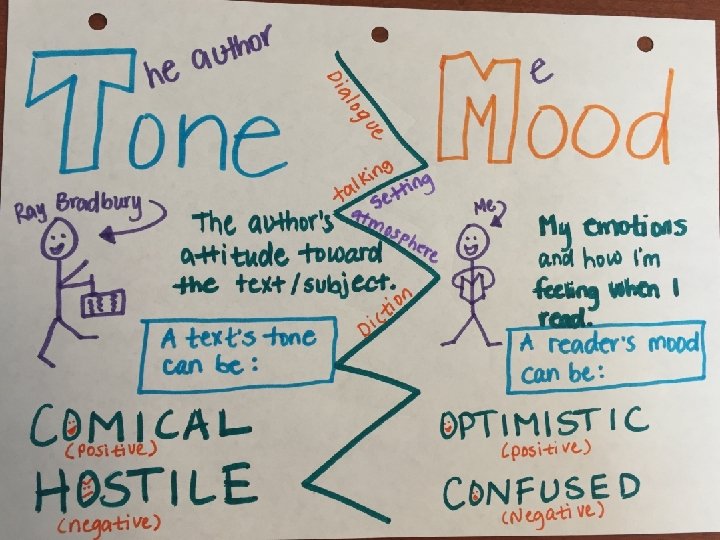 The author
Tone
Ray Bradbury
The author's
attitude toward
the text/subject.
A text's tone
can be:
COMICAL
(positive)
HOSTILE
(negative)
Dialogue
talking
setting
atmosphere
Diction
Me
Mood
Me
My emotions
and how I'm
feeling when I
read.
A reader's mood
can be:
OPTIMISTIC
(positive)
CONFUSED
(Negative)